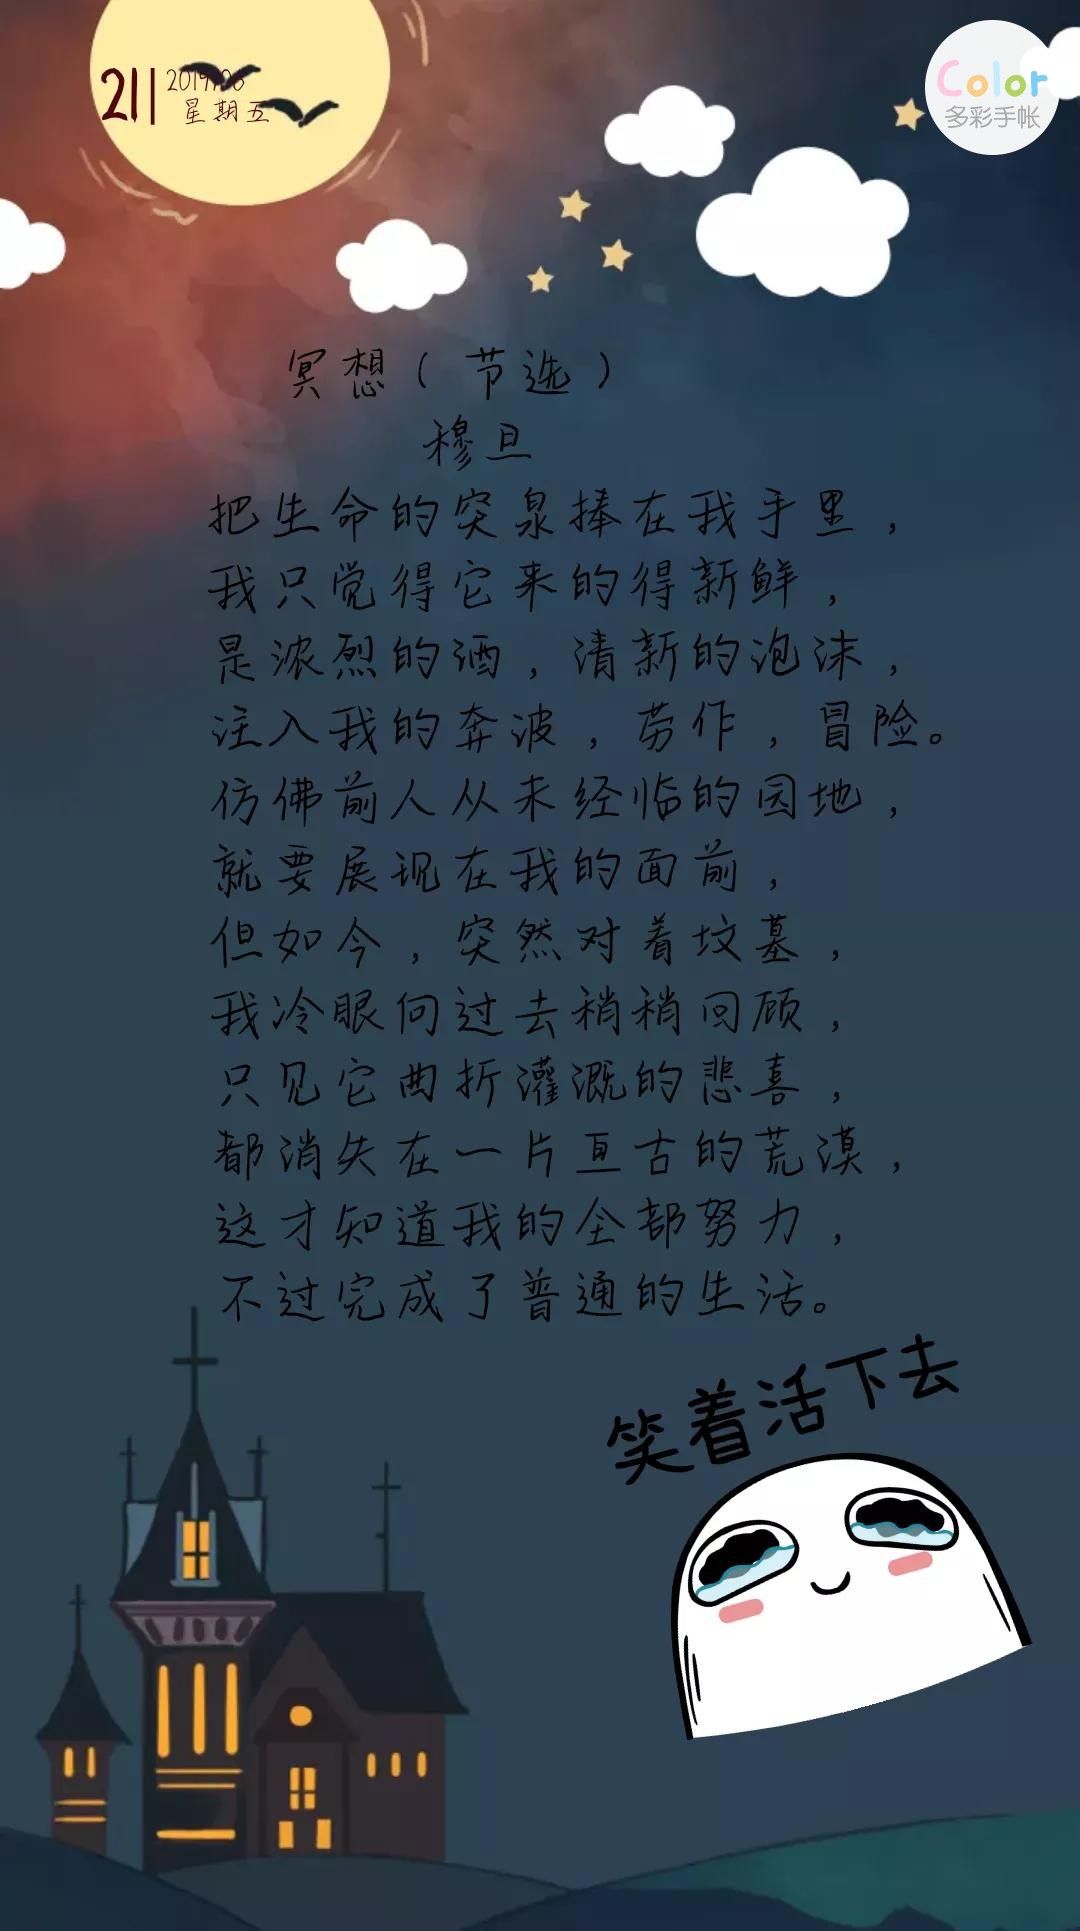 21
2019/06
星期五
Color
多彩手帐
冥想（节选）
穆旦
把生命的突泉捧在我手里，
我只觉得它来的得新鲜，
是浓烈的酒，清新的泡沫，
注入我的奔波，劳作，冒险。
仿佛前人从未经临的园地，
就要展现在我的面前，
但如今，突然对着坟墓，
我冷眼向过去稍稍回顾，
只见它曲折灌溉的悲喜，
都消失在一片亘古的荒漠，
这才知道我的全部努力，
不过完成了普通的生活。
笑着活下去